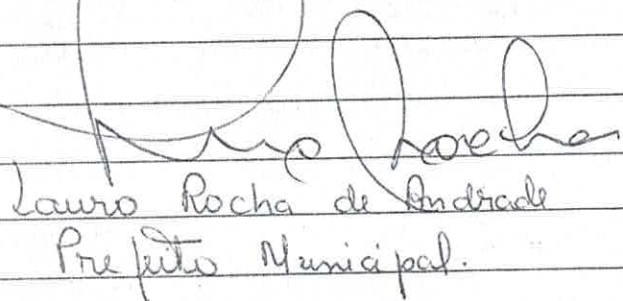 Lauro Rocha
Lauro Rocha de Andrade
Prefeito Municipal.